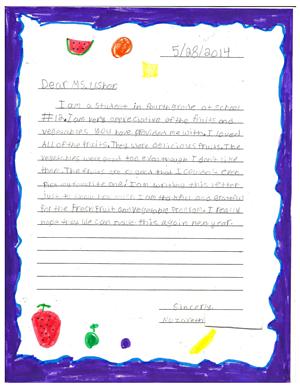 5/28/2014
Dear Ms. Usher,
I am a student in fourth grade at School
#12. I am very appreciative of the fruits and
vegetables you have provided me with. I loved
All of the fruits. They were delicious fruits. The
vegetables were good too even though I don't like
them. The fruits are so good that I couldn't even
pick my favorite one! I am writing this letter
just to show how much I am thankful and grateful
for the Fresh Fruit and Vegetable Program. I really
hope that we can have this again next year.
Sincerely,
Nazareth